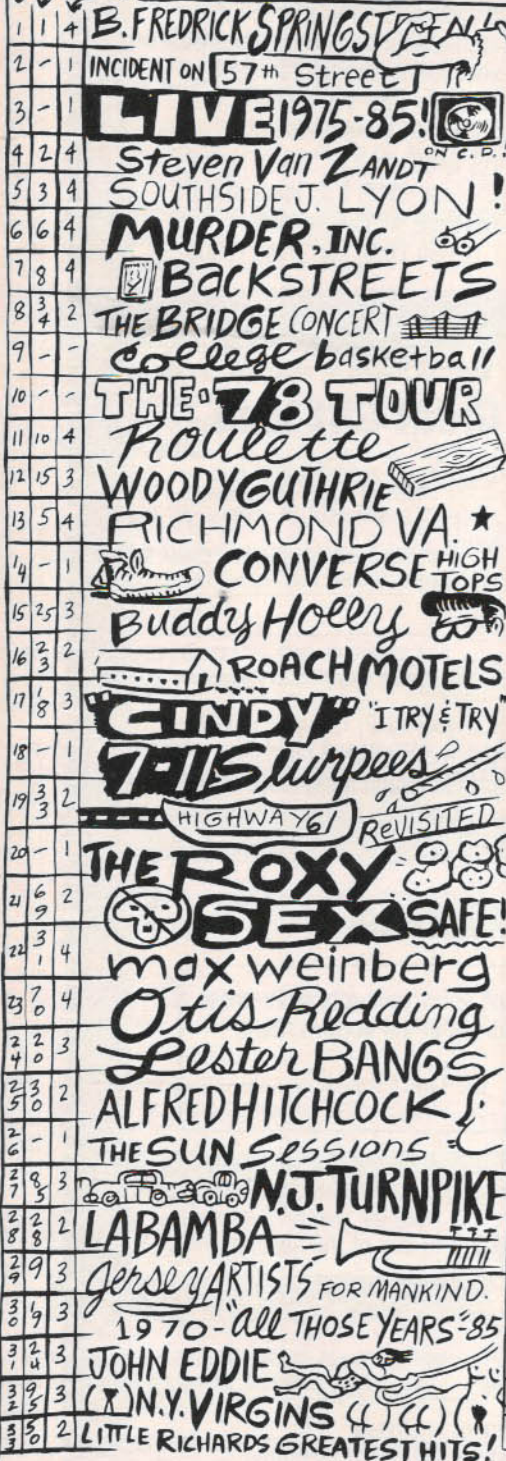 1 1 4 B. FREDRICK SPRINGSTEEN
2 - 1 INCIDENT ON 57th Street
3 - 1 LIVE 1975-85! ON C.D.!
4 2 4 Steven Van ZANDT
5 3 4 SOUTHSIDE J. LYON!
6 6 4 MURDER, INC.
7 8 4 BACKSTREETS
8 34 2 THE BRIDGE CONCERT
9 - - College basketball
10 - - THE '78 TOUR
11 10 4 Roulette
12 15 3 WOODY GUTHRIE
13 5 4 RICHMOND VA.
14 - 1 CONVERSE HIGH TOPS
15 25 3 Buddy Holly
16 23 2 ROACH MOTELS
17 18 3 "CINDY" "I TRY & TRY"
18 - 1 7-11 Slurpees
19 33 2 HIGHWAY 61 REVISITED
20 - 1 THE ROXY
21 69 2 SEX SAFE!
22 31 4 max weinberg
23 70 4 Otis Redding
24 20 3 Lester BANGS
25 30 2 ALFRED HITCHCOCK
26 - 1 THE SUN Sessions
27 85 3 N.J. TURNPIKE
28 28 2 LABAMBA
29 9 3 Jersey ARTISTS FOR MANKIND.
30 19 3 1970-"all THOSE YEARS"-85
31 24 3 JOHN EDDIE
32 95 3 N.Y. VIRGINS
33 50 2 LITTLE RICHARDS GREATEST HITS!